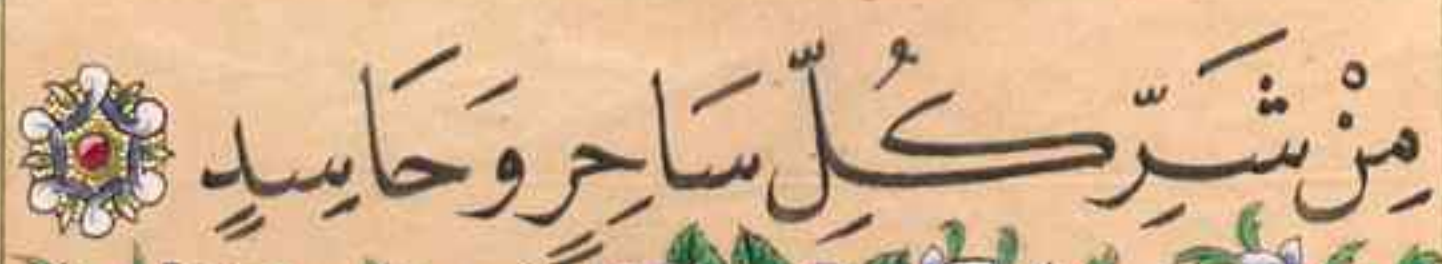 مِنْ شَرِّ كُلِّ سَاحِرٍ وَحَاسِدٍ